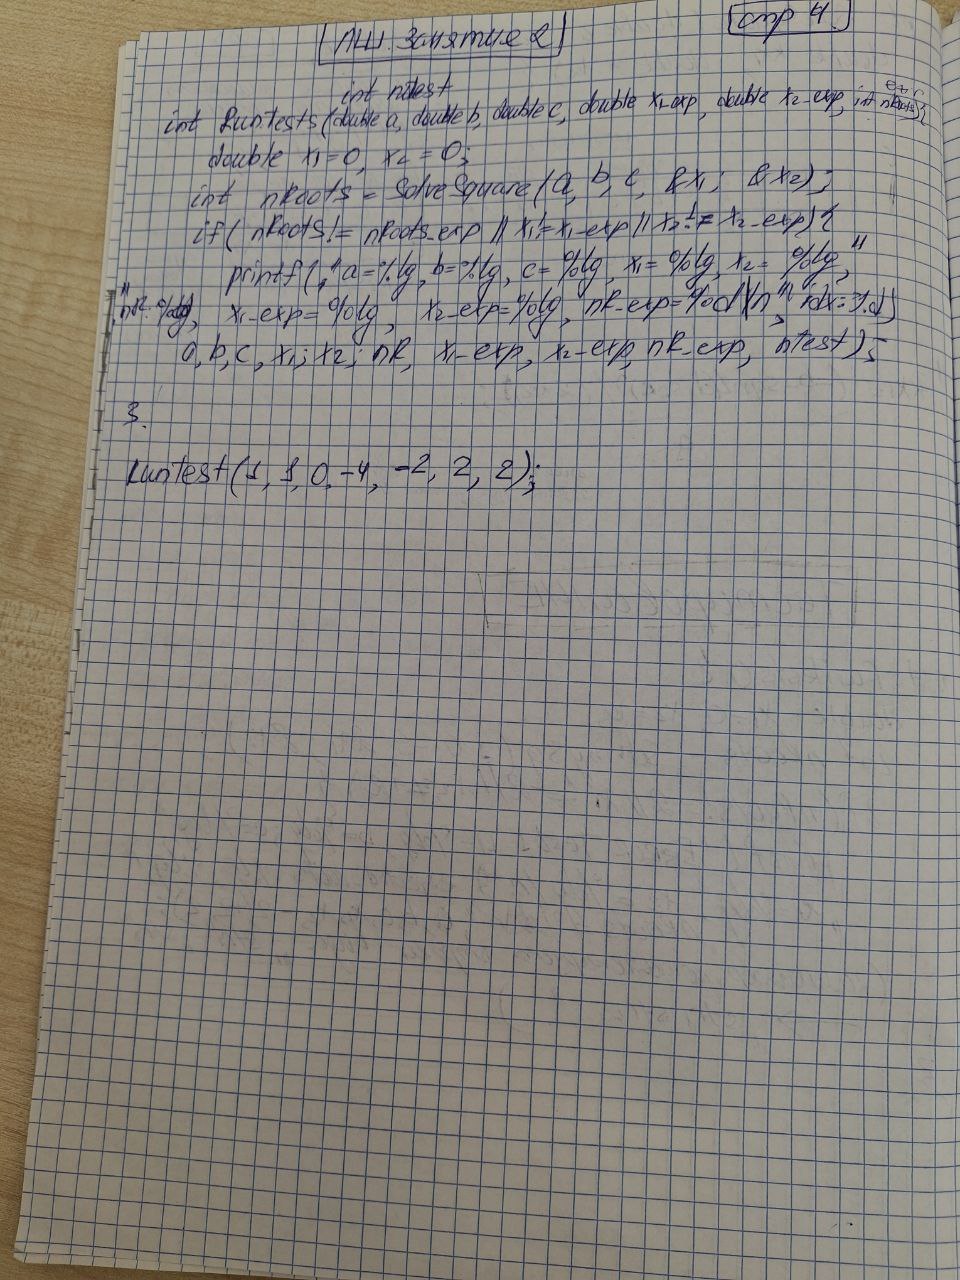 ЛШ. Занятие 2
стр 4.
int ntest
int RunTests (double a, double b, double c, double x1_exp, double x2_exp, int nRoots){
double x1=0, x2=0;
int nRoots = SolveSquare (a, b, c, &x1; &x2);
if( nRoots != nRoots_exp || x1!=x1_exp || x2!= x2_exp){
printf(, "a=%lg, b=%lg, c=%lg, x1=%lg, x2= %lg,"
x1_exp=%lg, x2_exp=%lg, nR_exp=%d\n",
a, b, c, x1; x2; nR, x1_exp, x2_exp, nR_exp, ntest);
3.
RunTest(1, 1, 0, -4, -2, 2, 2);